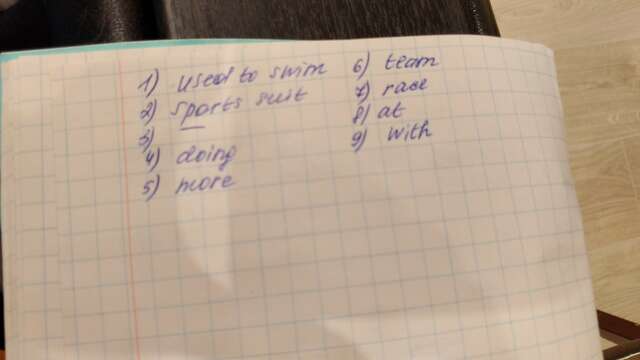 1) used to swim
2) sports suit
3) —
4) doing
5) more
6) team
7) race
8) at
9) with